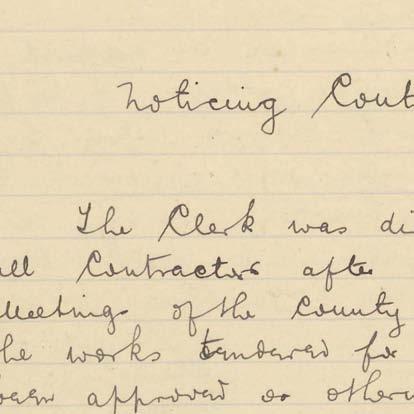 Noticing Cont
The Clerk was di
all Contractors after
Meetings of the County
the works tendered for
been approved or otherw